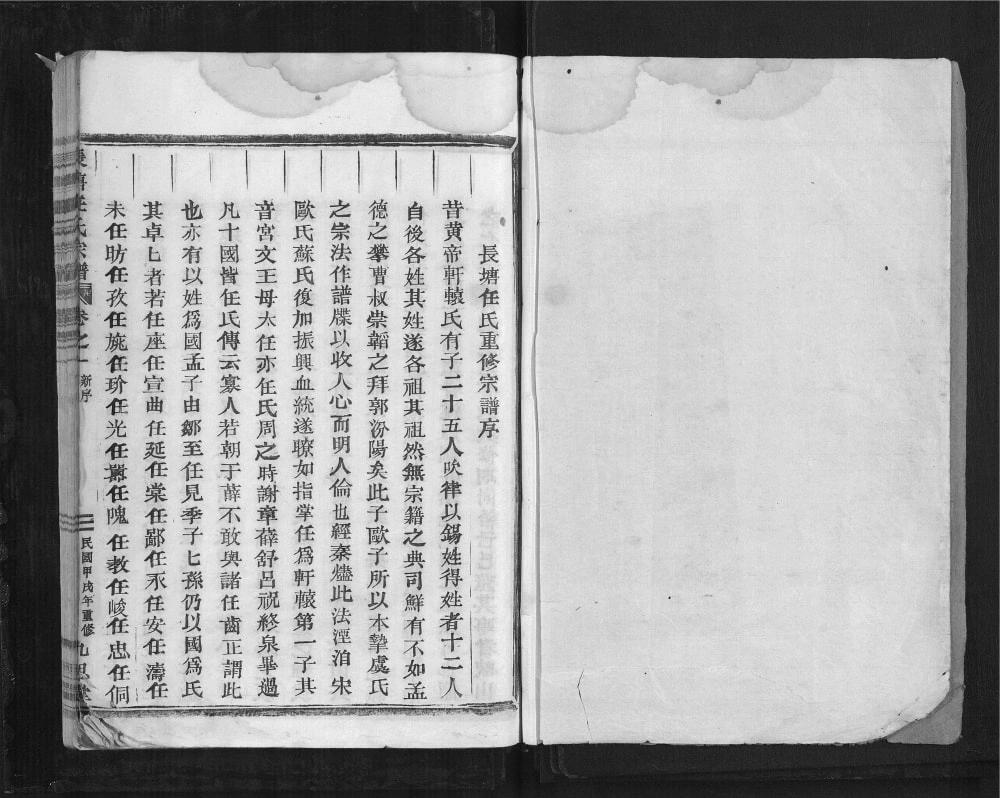 長塘任氏重修宗譜序
昔黄帝軒轅氏有子二十五人吹律以錫姓得姓者十二人
自後各姓其姓遂各祖其祖然無宗籍之典司鮮有不如孟
德之攀曹叔崇韜之拜郭汾陽矣此子歐子所以本摯虞氏
之宗法作譜牒以收人心而明人倫也經秦燼此法溼泊宋
歐氏蘇氏復加振興血統遂瞭如指掌任爲軒轅第一子其
音宮文王母太任亦任氏周之時謝章薛舒呂祝終泉畢過
凡十國皆任氏傳云寡人若朝于薛不敢與諸任齒正謂此
也亦有以姓爲國孟子由鄒至任見季子七孫仍以國爲氏
其卓卓者若任座任宣曲任延任棠任鄙任永任安任濤任
未任昉任孜任旐任玠任光任嚻任隗任敖任峻任忠任侗
長塘任氏宗譜 卷之一 新序
民國甲戌年重修 九思堂